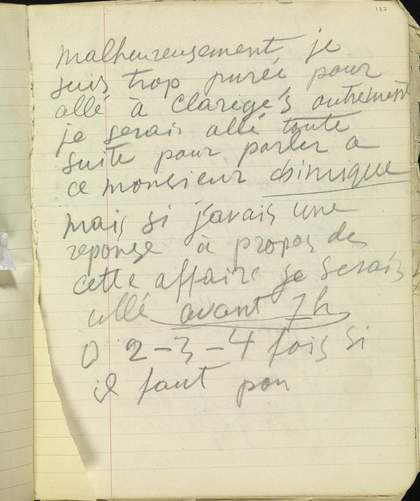 137
malheureusement je
suis trop purée pour
allé à Clarige's autrement
je serais allé toute
suite pour parler a
ce monsieur chimique
mais si j'avais une
reponse à propos de
cette affaire je serais
allé avant 7h
2-3-4 fois si
il faut pour